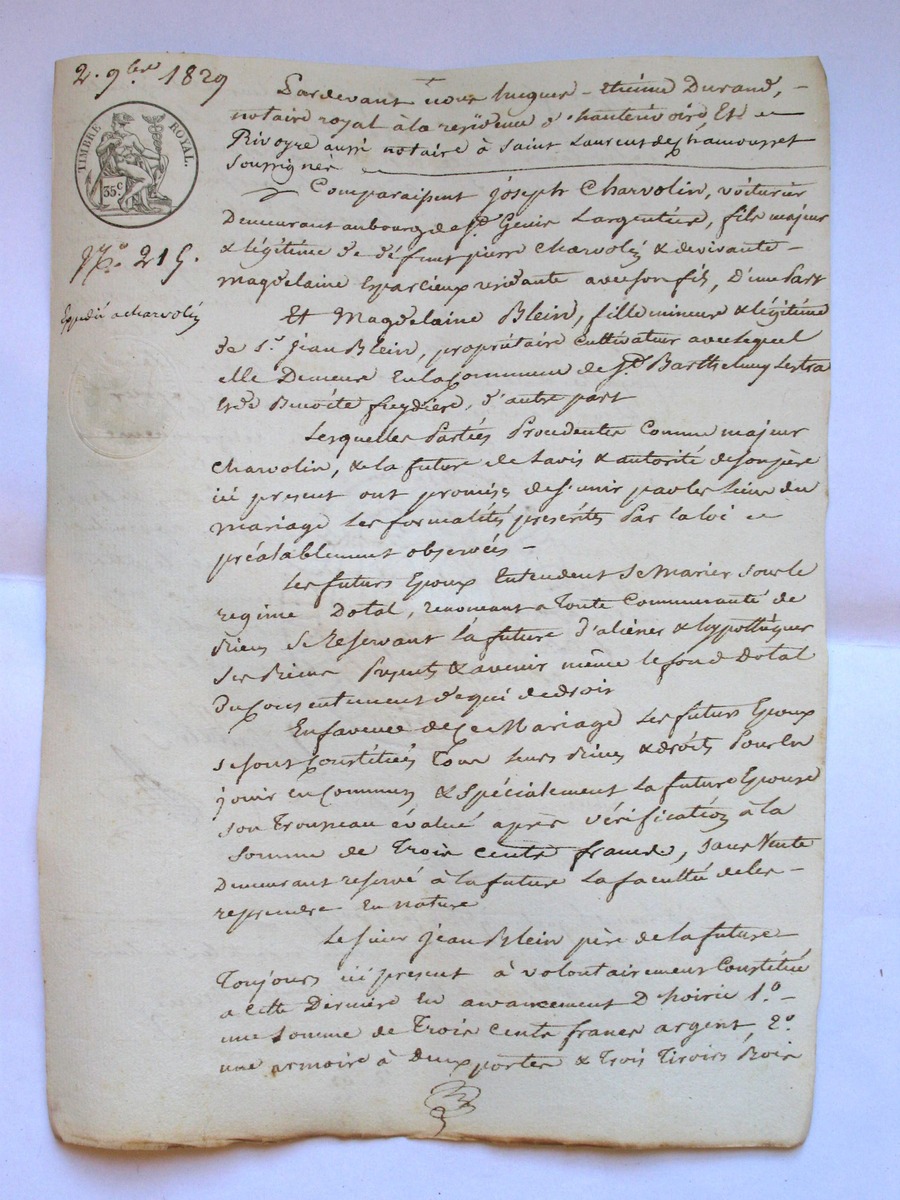 2. 9bre 1829
TIMBRE ROYAL.
35c
N.o 215.
Expédié a charvolin
Pardevant nous hugues-étiénne Durand,
notaire royal à la residence d'hauterivoire, Et
Rivoyre aussi notaire à Saint Laurent de chamousset
soussignés
Comparaissent joseph Charvolin, voiturier
Demeurant au bourg de St Genis Largentière, fils majeur
& légitime de défunt pierre charvolin & de vivante
magdelaine Esparcieux residante avec son fils, D'une Part
Et Magdelaine Blein, fille mineure & légitime
de sr jean Blein, propriétaire cultivateur avec lequel
elle Demeure En la Commune de St Barthelemy Lestra
et de Benoite, d'autre part
Lesquelles Parties Procedentes Comme majeur
charvolin, & la future de Lavis & autorité de son père
ici present ont promises de s'unir par les Liens du
mariage Les formalités prescrites Par la loi
préalablement observées
Les futurs Epoux Entendent Se Marier sous le
regime Dotal, renoncant a Toute Communauté de
Biens Se Reservant La future D'aliéner & hypothéquer
Ses Biens Presents & avenir même le fond Dotal
Du Consentement de qui de droit
En faveur de Ce Mariage Les futurs Epoux
se sont Constitués Tous Leurs Biens & droits Pour En
jouir en Commun & Spécialement La future Epouse
son Trousseau évalué après vérification à la
Somme de Trois cents francs, sans Vente
Demeurant reservé à la future La faculté de les
reprendre En nature
Le sieur jean Blein père de la future
Toujours ici present à volontairement Constitué
a cette Dernière En avancement D'hoirie 1.o
une somme de Trois cents francs argent, 2.o
une armoire à Deux portes & Trois Tiroirs Bois